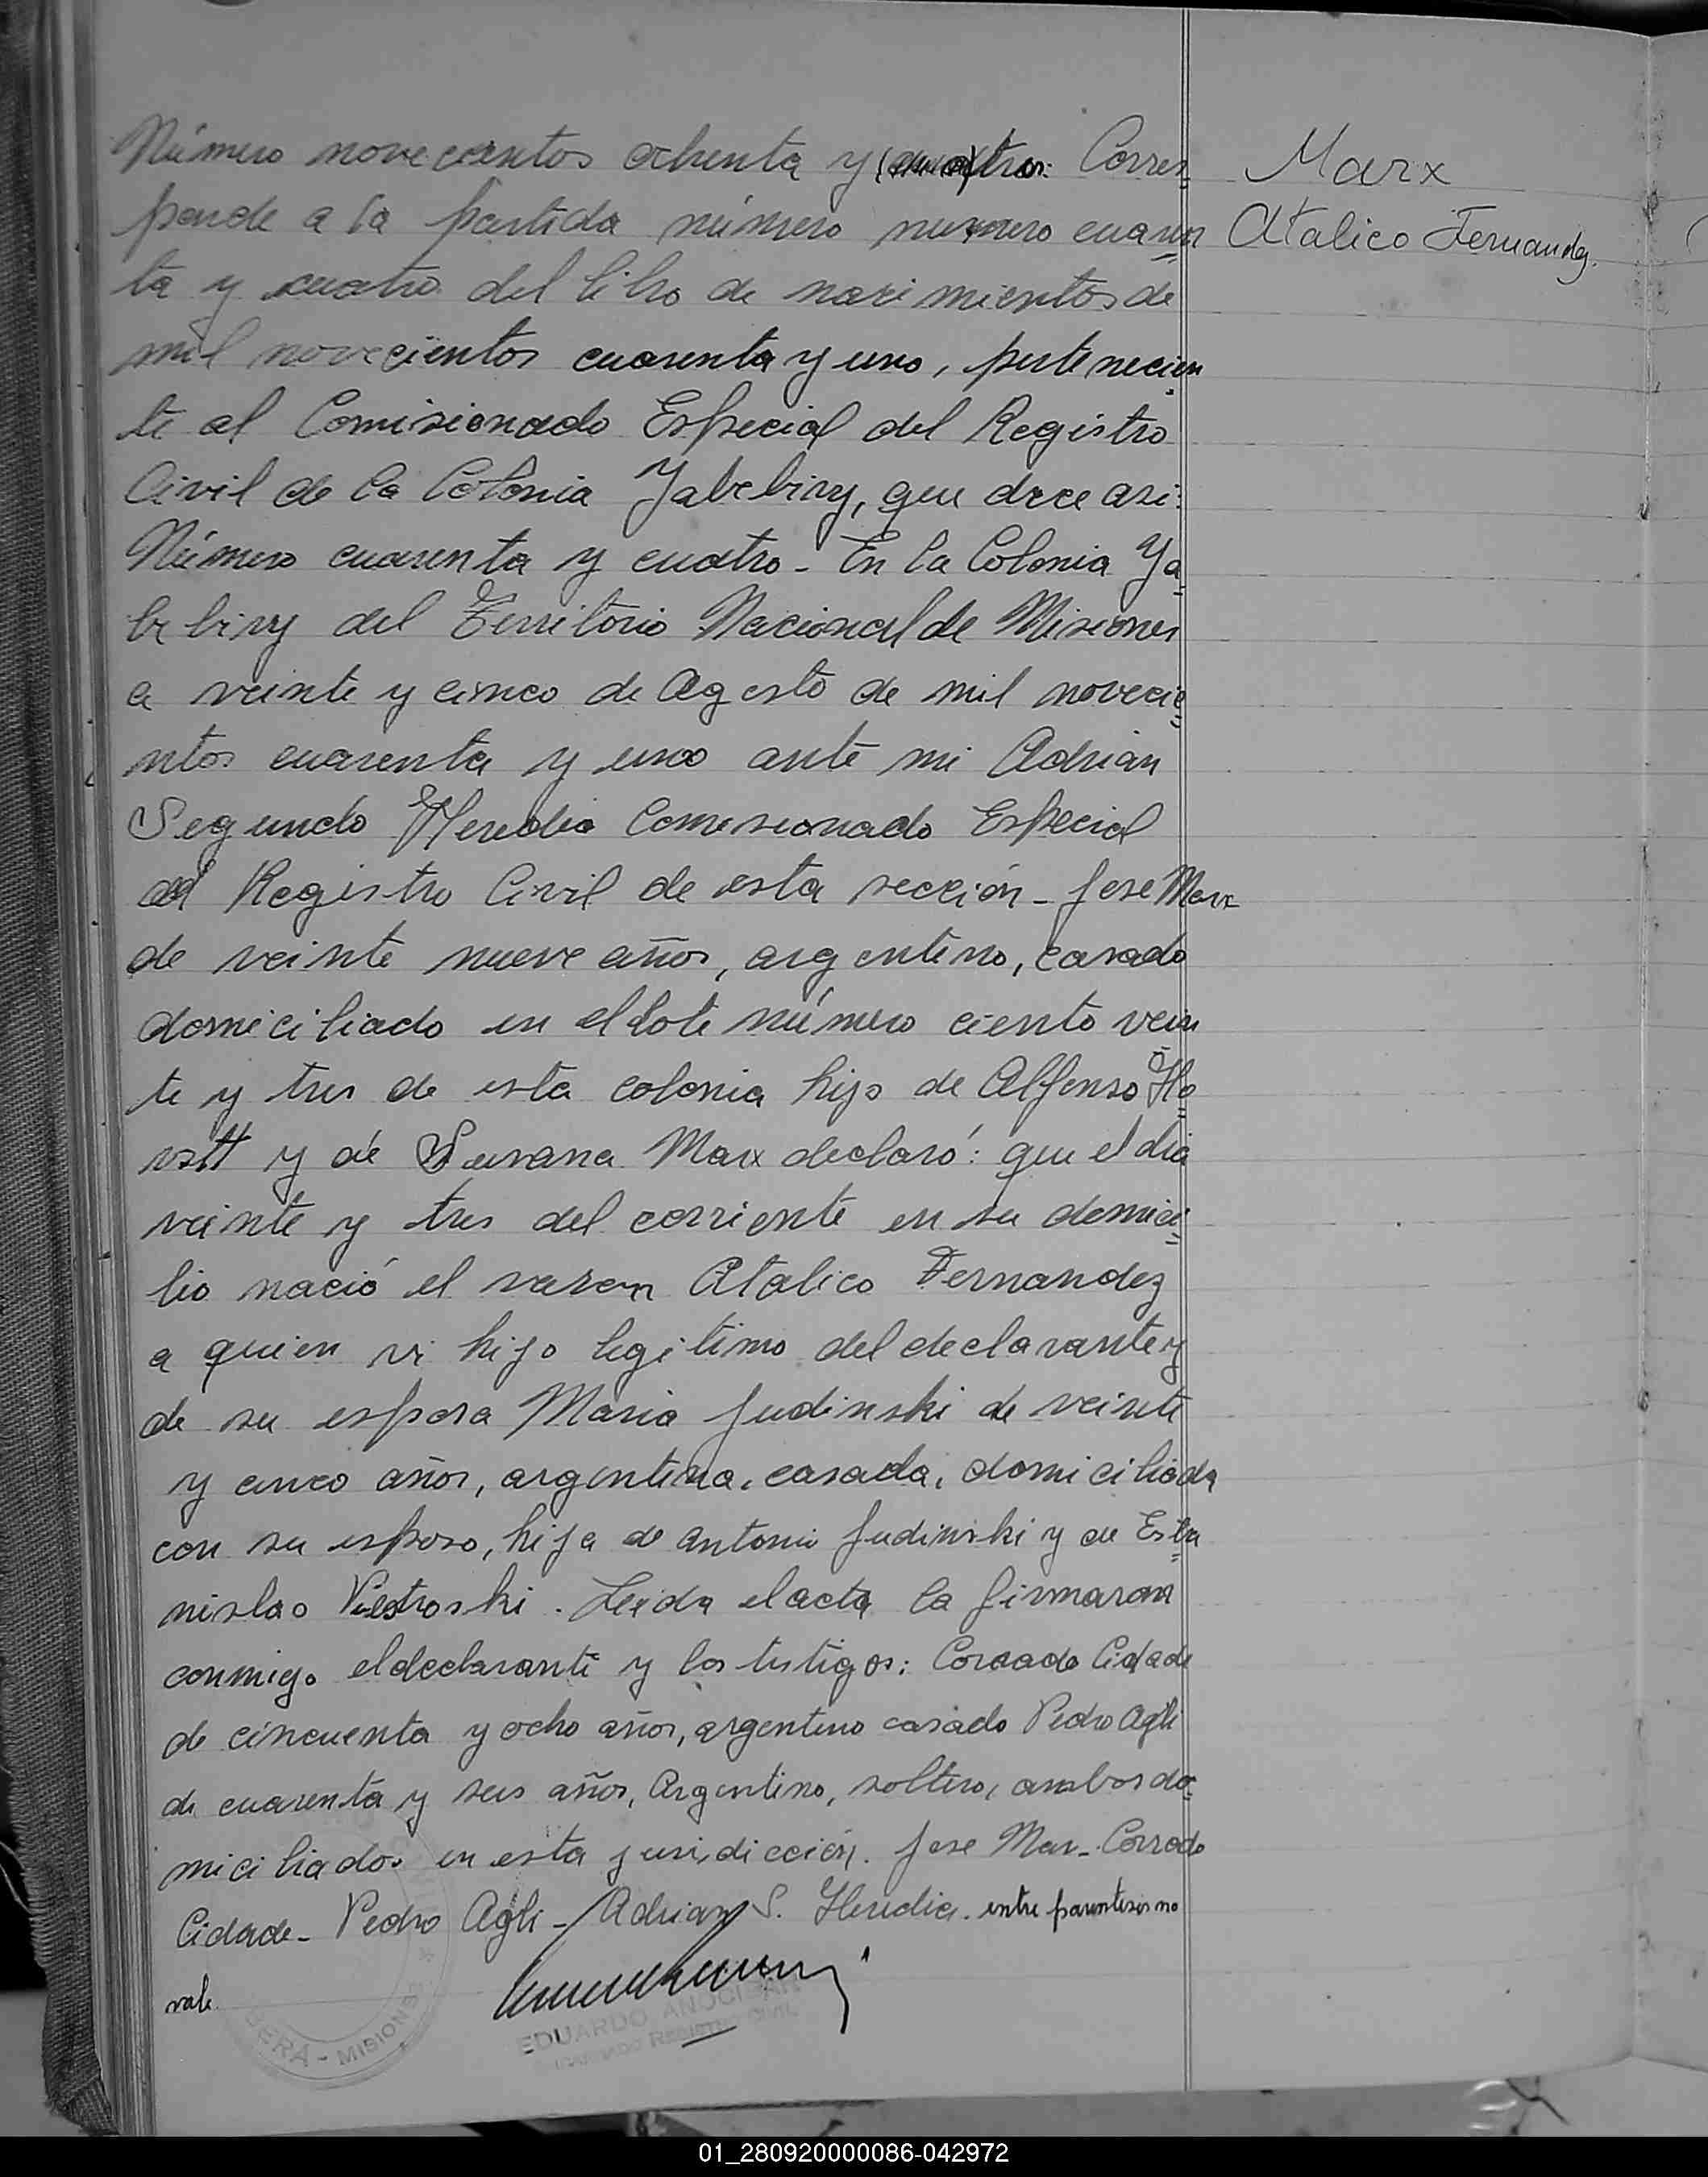 Número novecientos ochenta y (cua)tro: Corres
Marx
ponde a la partida número numero cuaren
Atalico Fernandez.
ta y cuatro del libro de nacimientos de
mil novecientos cuarenta y uno, pertenecien
te al Comisionado Especial del Registro
Civil de la Colonia Yabebiry, que dice asi:
Número cuarenta y cuatro - En la Colonia Ya
bebiry del Territorio Nacional de Misiones
a veinte y cinco de Agosto de mil novecie
ntos cuarenta y uno ante mi Adrian
Segundo Heredia Comisionado Especial
del Registro Civil de esta sección - Jose Marx
de veinte nueve años, argentino, casado
domiciliado en el Lote número ciento vein
te y tres de esta colonia hijo de Alfonso
y de Susana Marx declaró: que el dia
veinte y tres del corriente en su domici
lio nació el varon Atalico Fernandez
a quien vi hijo legitimo del declarante y
de su esposa Maria Judinski de veinte
y cinco años, argentina, casada, domiciliada
con su esposo, hija de Antonio Judinski y de Esta
nislao Viestroski. Leida el acta la firmaron
conmigo el declarante y los testigos: Corrado Cidade
de cincuenta y ocho años, argentino casado Pedro Agli
de cuarenta y seis años, Argentino, soltero, ambos do
miciliados en esta jurisdicción. Jose Marx - Corrado
Cidade - Pedro Agli - Adrian S. Heredia. entre parentesis no
vale
BERÁ - MISIONES
EDUARDO ANOCIBAR
01_280920000086-042972